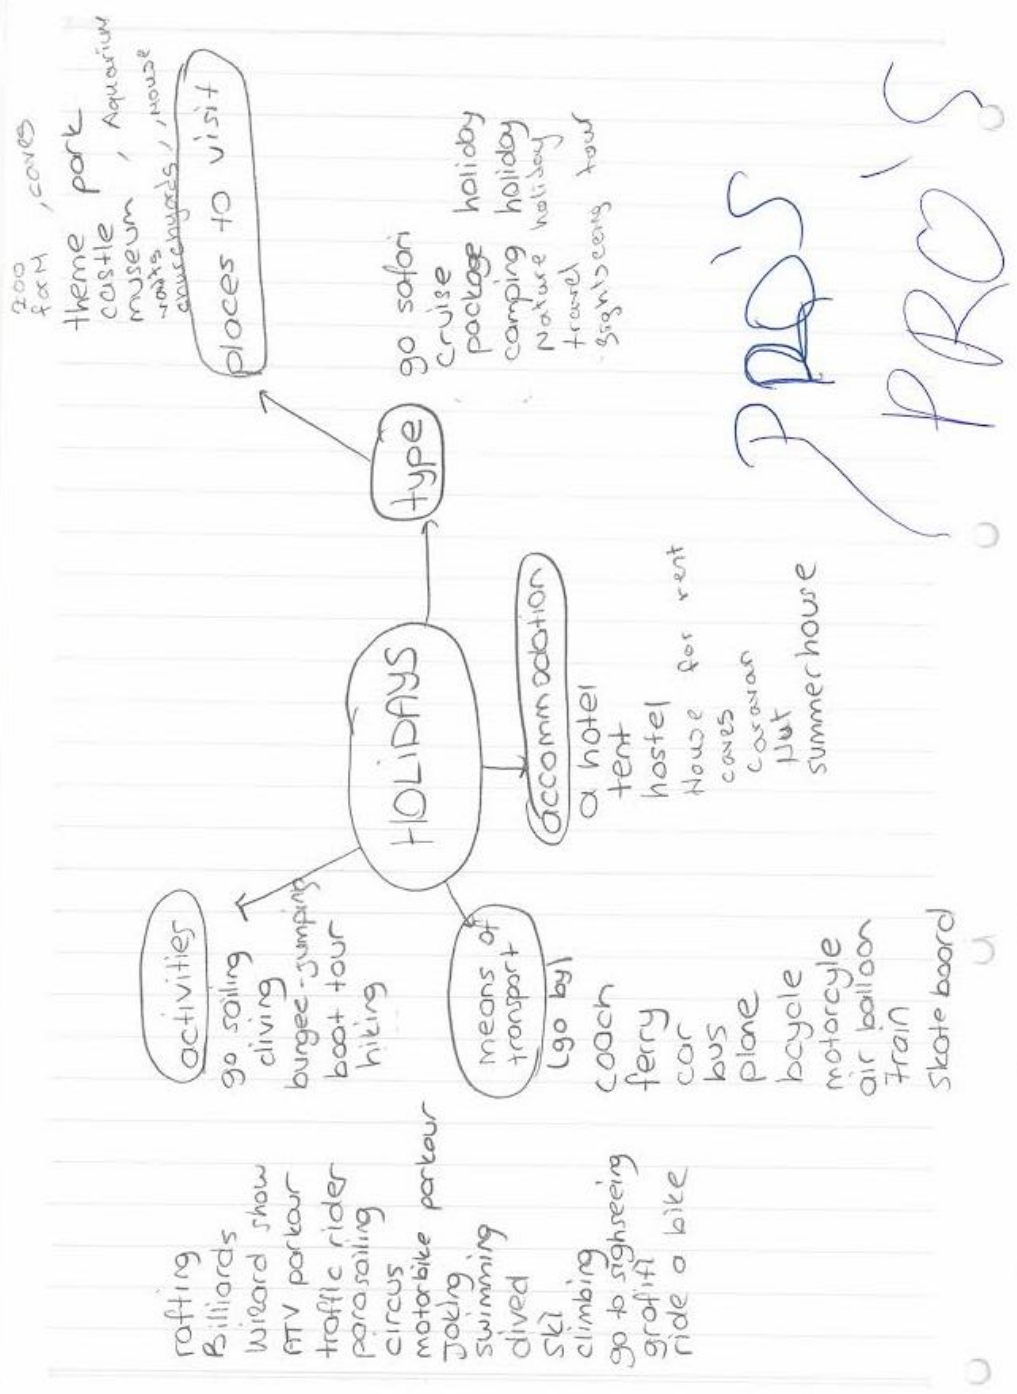 HOLIDAYS
activities
go sailing
diving
bungee-jumping
boat tour
hiking
rafting
Billiards
Wizard show
ATV parkour
traffic rider
parasailing
circus
motorbike parkour
Joking
swimming
dived
ski
climbing
go to sighseeing
grafiti
ride a bike
means of
transport
(go by)
coach
ferry
car
bus
plane
bcycle
motorcyle
air balloon
train
skateboard
accommodation
a hotel
tent
hostel
House for rent
caves
caravan
Hut
summerhouse
type
go safari
cruise
package holiday
camping holiday
Nature holiday
travel
sightseeing tour
places to visit
zoo
farm , caves
theme park
castle
museum , Aquarium
churchyards, House
PRO'S
PRO'S